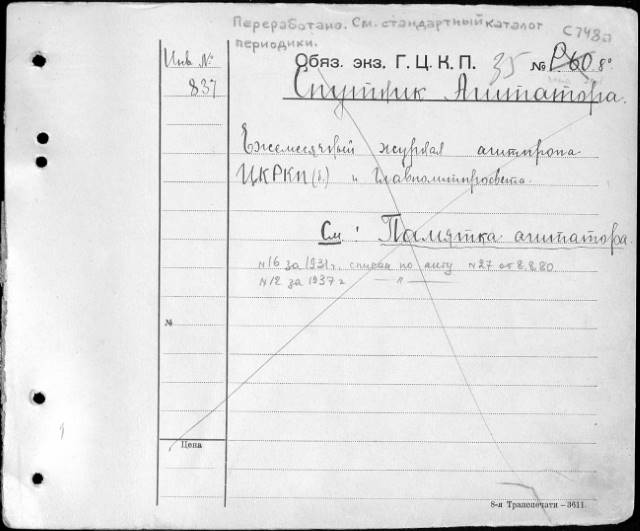 Переработано. См. стандартный каталог
периодики.
С748а
Инв №
837
Обяз. экз. Г. Ц. К. П. 35 № Р60 8°
Спутник Агитатора.
Ежемесячный журнал агитпропа
ЦКРКП(б.) и Главполитпросвета.
См: Памятка агитатора.
N16 за 1931г. списан по акту N27 от 8.8.80.
N12 за 1937г — " —
№
Цена
8-я Транспечати – 3611.